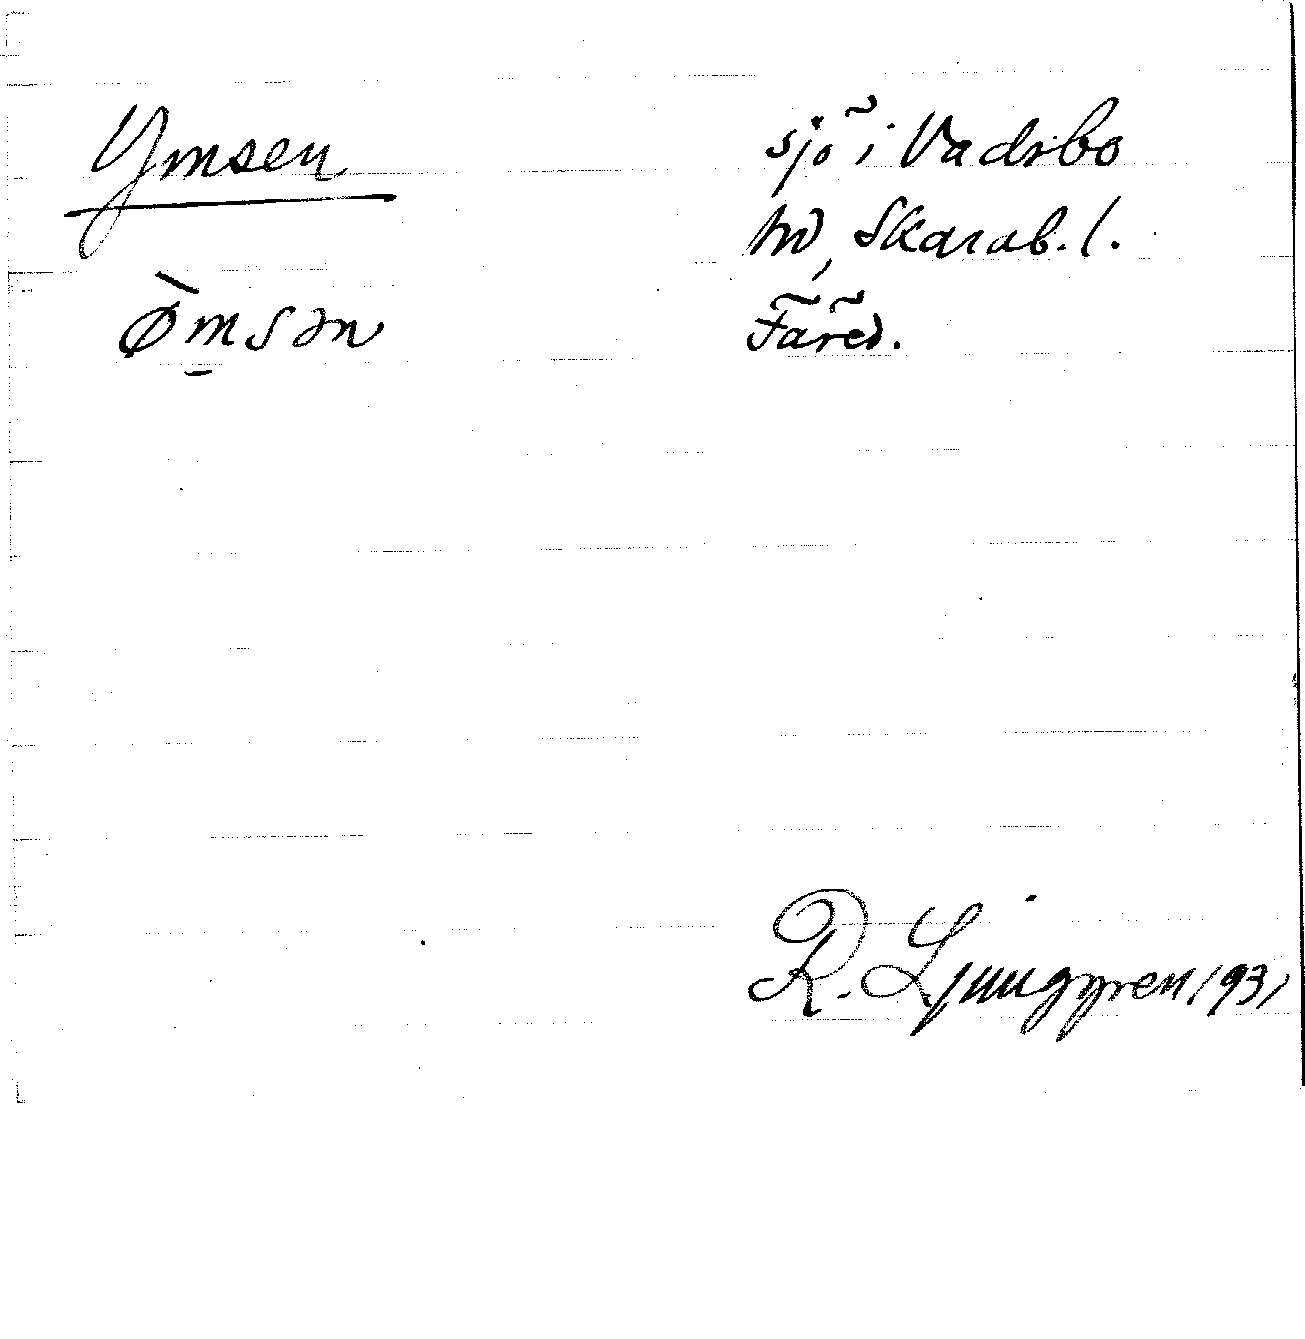 Ymsen
sjö i Vadsbo
hd, Skarab. l.
Ømsən
Färed.
R. Ljunggren 1931